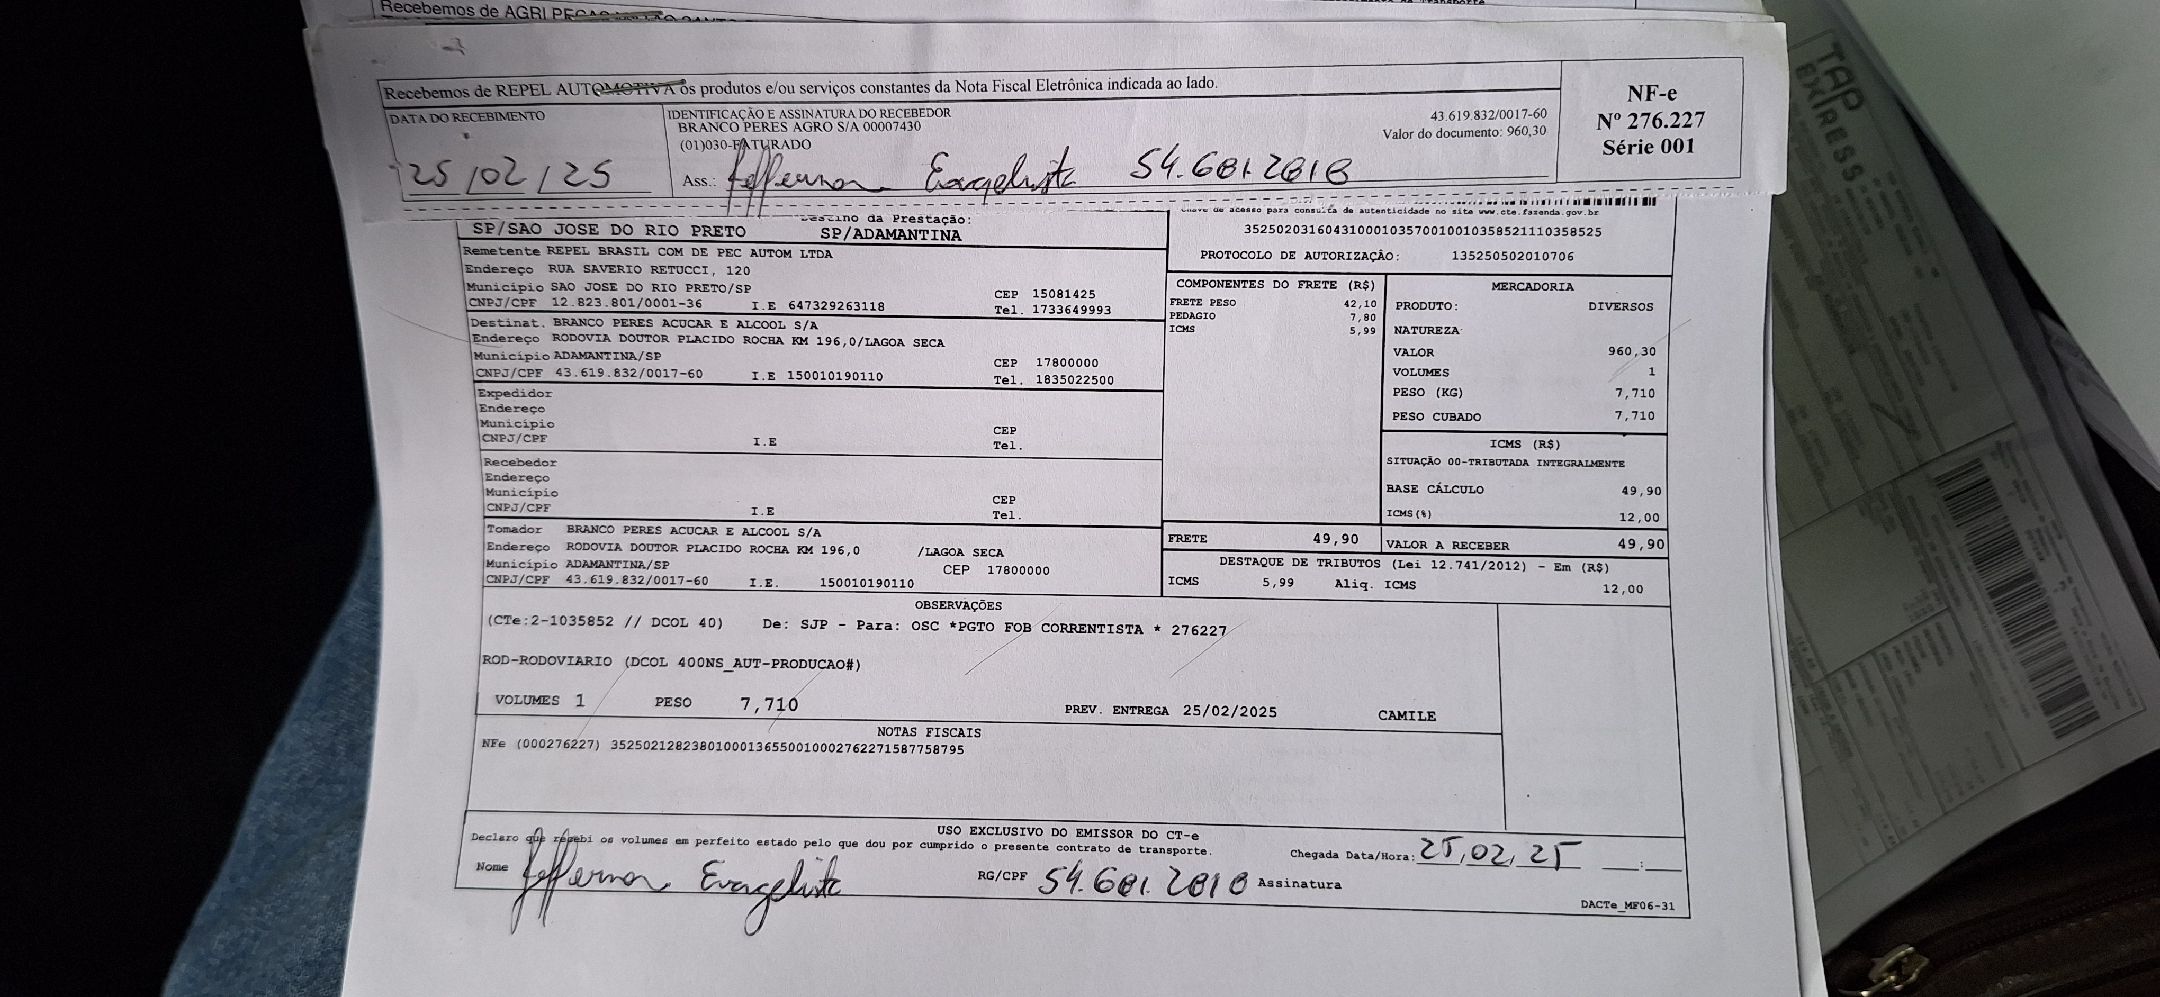 Recebemos de AGRI
Recebemos de REPEL AUTOMOTIVA os produtos e/ou serviços constantes da Nota Fiscal Eletrônica indicada ao lado.
DATA DO RECEBIMENTO
25/02/25
IDENTIFICAÇÃO E ASSINATURA DO RECEBEDOR
BRANCO PERES AGRO S/A 00007430
(01)030-FATURADO
Ass.: Jefferson Evangelista
43.619.832/0017-60
Valor do documento: 960,30
NF-e
Nº 276.227
Série 001
SP/SAO JOSE DO RIO PRETO
Destino da Prestação:
SP/ADAMANTINA
Chave de acesso para consulta de autenticidade no site www.cte.fazenda.gov.br
35250203160431000103570010010358521110358525
PROTOCOLO DE AUTORIZAÇÃO: 135250502010706
Remetente REPEL BRASIL COM DE PEC AUTOM LTDA
Endereço RUA SAVERIO RETUCCI, 120
Município SAO JOSE DO RIO PRETO/SP CEP 15081425
CNPJ/CPF 12.823.801/0001-36 I.E 647329263118 Tel. 1733649993
Destinat. BRANCO PERES ACUCAR E ALCOOL S/A
Endereço RODOVIA DOUTOR PLACIDO ROCHA KM 196,0/LAGOA SECA
Município ADAMANTINA/SP CEP 17800000
CNPJ/CPF 43.619.832/0017-60 I.E 150010190110 Tel. 1835022500
Expedidor
Endereço
Município CEP
CNPJ/CPF I.E Tel.
Recebedor
Endereço
Município CEP
CNPJ/CPF I.E Tel.
Tomador BRANCO PERES ACUCAR E ALCOOL S/A
Endereço RODOVIA DOUTOR PLACIDO ROCHA KM 196,0 /LAGOA SECA
Município ADAMANTINA/SP CEP 17800000
CNPJ/CPF 43.619.832/0017-60 I.E. 150010190110
COMPONENTES DO FRETE (R$)
FRETE PESO 42,10
PEDAGIO 7,80
ICMS 5,99
MERCADORIA
PRODUTO: DIVERSOS
NATUREZA
VALOR 960,30
VOLUMES 1
PESO (KG) 7,710
PESO CUBADO 7,710
ICMS (R$)
SITUAÇÃO 00-TRIBUTADA INTEGRALMENTE
BASE CÁLCULO 49,90
ICMS(%) 12,00
FRETE 49,90
VALOR A RECEBER 49,90
DESTAQUE DE TRIBUTOS (Lei 12.741/2012) - Em (R$)
ICMS 5,99 Aliq. ICMS 12,00
OBSERVAÇÕES
(CTe:2-1035852 // DCOL 40) De: SJP - Para: OSC *PGTO FOB CORRENTISTA * 276227
ROD-RODOVIARIO (DCOL 400NS_AUT-PRODUCAO#)
VOLUMES 1 PESO 7,710 PREV. ENTREGA 25/02/2025 CAMILE
NOTAS FISCAIS
NFe (000276227) 35250212823801000136550010002762271587758795
USO EXCLUSIVO DO EMISSOR DO CT-e
Declaro que recebi os volumes em perfeito estado pelo que dou por cumprido o presente contrato de transporte.
Chegada Data/Hora: 25,02,25 __:__
Nome Jefferson Evangelista RG/CPF Assinatura
DACTe_MF06-31
TAP
EXPRESS